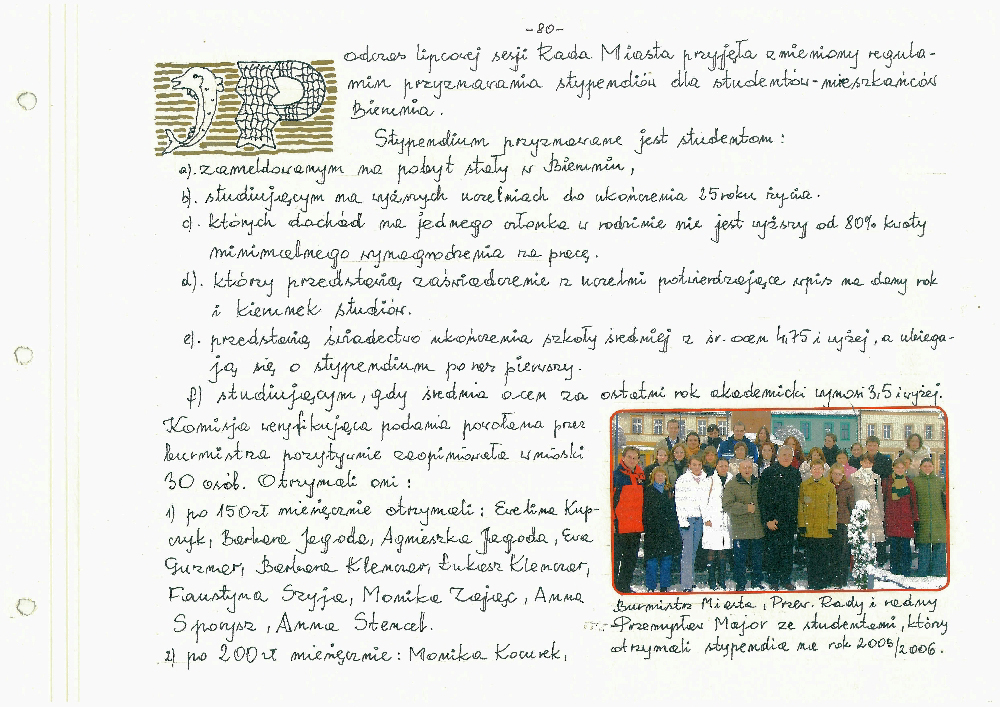 -80-
Podczas lipcowej sesji Rada Miasta przyjęła zmieniony regula-
min przyznawania stypendiów dla studentów-mieszkańców
Bierunia.
Stypendium przyznawane jest studentom:
a). zameldowanym na pobyt stały w Bieruniu,
b). studiującym na wyższych uczelniach do ukończenia 25 roku życia.
c). których dochód na jednego członka w rodzinie nie jest wyższy od 80% kwoty
minimalnego wynagrodzenia za pracę.
d). którzy przedstawią zaświadczenie z uczelni potwierdzające wpis na dany rok
i kierunek studiów.
e). przedstawią świadectwo ukończenia szkoły średniej z śr. ocen 4,75 i wyżej, a ubiega-
ją się o stypendium po raz pierwszy.
f) studiującym, gdy średnia ocen za ostatni rok akademicki wynosi 3,5 i wyżej.
Komisja weryfikująca podania powołana przez
burmistrza pozytywnie zaopiniowała wnioski
30 osób. Otrzymali oni:
1) po 150 zł miesięcznie otrzymali: Ewelina Kup-
czyk, Barbara Jagoda, Agnieszka Jagoda, Ewa
Guzmar, Barbara Klenczar, Łukasz Klenczar,
Faustyna Szyja, Monika Zając, Anna
Sporysz, Anna Stencel.
2) po 200 zł miesięcznie: Monika Kocurek,
Burmistrz Miasta, Przew. Rady i radny
Przemysław Major ze studentami, który
otrzymali stypendia na rok 2005/2006.